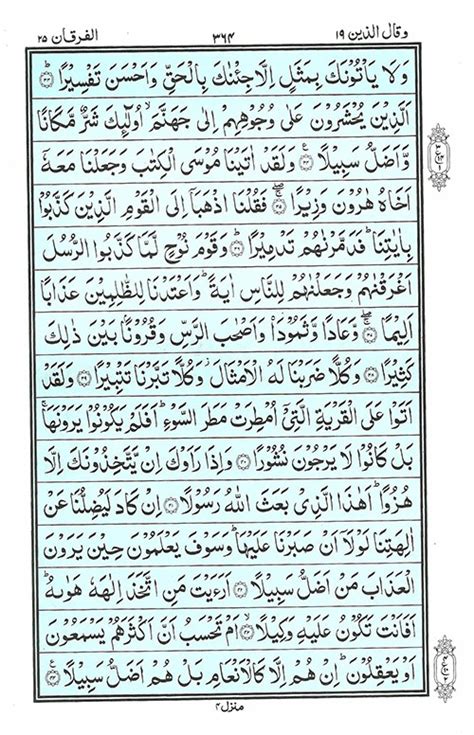 وقال الذين ١٩ ٣٦٤ الفرقان ٢٥
وَلَا يَاْتُوْنَكَ بِمَثَلٍ اِلَّا جِئْنٰكَ بِالْحَقِّ وَاَحْسَنَ تَفْسِيْرًا ؕ﴿٣٣﴾
اَلَّذِيْنَ يُحْشَرُوْنَ عَلٰى وُجُوْهِهِمْ اِلٰى جَهَنَّمَ ۙ اُولٰٓئِكَ شَرٌّ مَّكَانًا
وَّاَضَلُّ سَبِيْلًا ﴿٣٤﴾ وَلَقَدْ اٰتَيْنَا مُوْسَى الْكِتٰبَ وَجَعَلْنَا مَعَهٗۤ
اَخَاهُ هٰرُوْنَ وَزِيْرًا ﴿٣٥﴾ فَقُلْنَا اذْهَبَاۤ اِلَى الْقَوْمِ الَّذِيْنَ كَذَّبُوْا
بِاٰيٰتِنَا ؕ فَدَمَّرْنٰهُمْ تَدْمِيْرًا ﴿٣٦﴾ وَقَوْمَ نُوْحٍ لَّمَّا كَذَّبُوا الرُّسُلَ
اَغْرَقْنٰهُمْ وَجَعَلْنٰهُمْ لِلنَّاسِ اٰيَةً ؕ وَاَعْتَدْنَا لِلظّٰلِمِيْنَ عَذَابًا
اَلِيْمًا ﴿٣٧﴾ وَّعَادًا وَّثَمُوْدَا۟ وَاَصْحٰبَ الرَّسِّ وَقُرُوْنًۢا بَيْنَ ذٰلِكَ
كَثِيْرًا ﴿٣٨﴾ وَكُلًّا ضَرَبْنَا لَهُ الْاَمْثَالَ ؗ وَكُلًّا تَبَّرْنَا تَتْبِيْرًا ﴿٣٩﴾ وَلَقَدْ
اَتَوْا عَلَى الْقَرْيَةِ الَّتِيْۤ اُمْطِرَتْ مَطَرَ السَّوْءِ ؕ اَفَلَمْ يَكُوْنُوْا يَرَوْنَهَا ۚ
بَلْ كَانُوْا لَا يَرْجُوْنَ نُشُوْرًا ﴿٤٠﴾ وَاِذَا رَاَوْكَ اِنْ يَّتَّخِذُوْنَكَ اِلَّا
هُزُوًا ؕ اَهٰذَا الَّذِيْ بَعَثَ اللّٰهُ رَسُوْلًا ﴿٤١﴾ اِنْ كَادَ لَيُضِلُّنَا عَنْ
اٰلِهَتِنَا لَوْلَاۤ اَنْ صَبَرْنَا عَلَيْهَا ؕ وَسَوْفَ يَعْلَمُوْنَ حِيْنَ يَرَوْنَ
الْعَذَابَ مَنْ اَضَلُّ سَبِيْلًا ﴿٤٢﴾ اَرَءَيْتَ مَنِ اتَّخَذَ اِلٰهَهٗ هَوٰىهُ ؕ
اَفَاَنْتَ تَكُوْنُ عَلَيْهِ وَكِيْلًا ﴿٤٣﴾ اَمْ تَحْسَبُ اَنَّ اَكْثَرَهُمْ يَسْمَعُوْنَ
اَوْ يَعْقِلُوْنَ ؕ اِنْ هُمْ اِلَّا كَالْاَنْعَامِ بَلْ هُمْ اَضَلُّ سَبِيْلًا ﴿٤٤﴾
منزل ٤